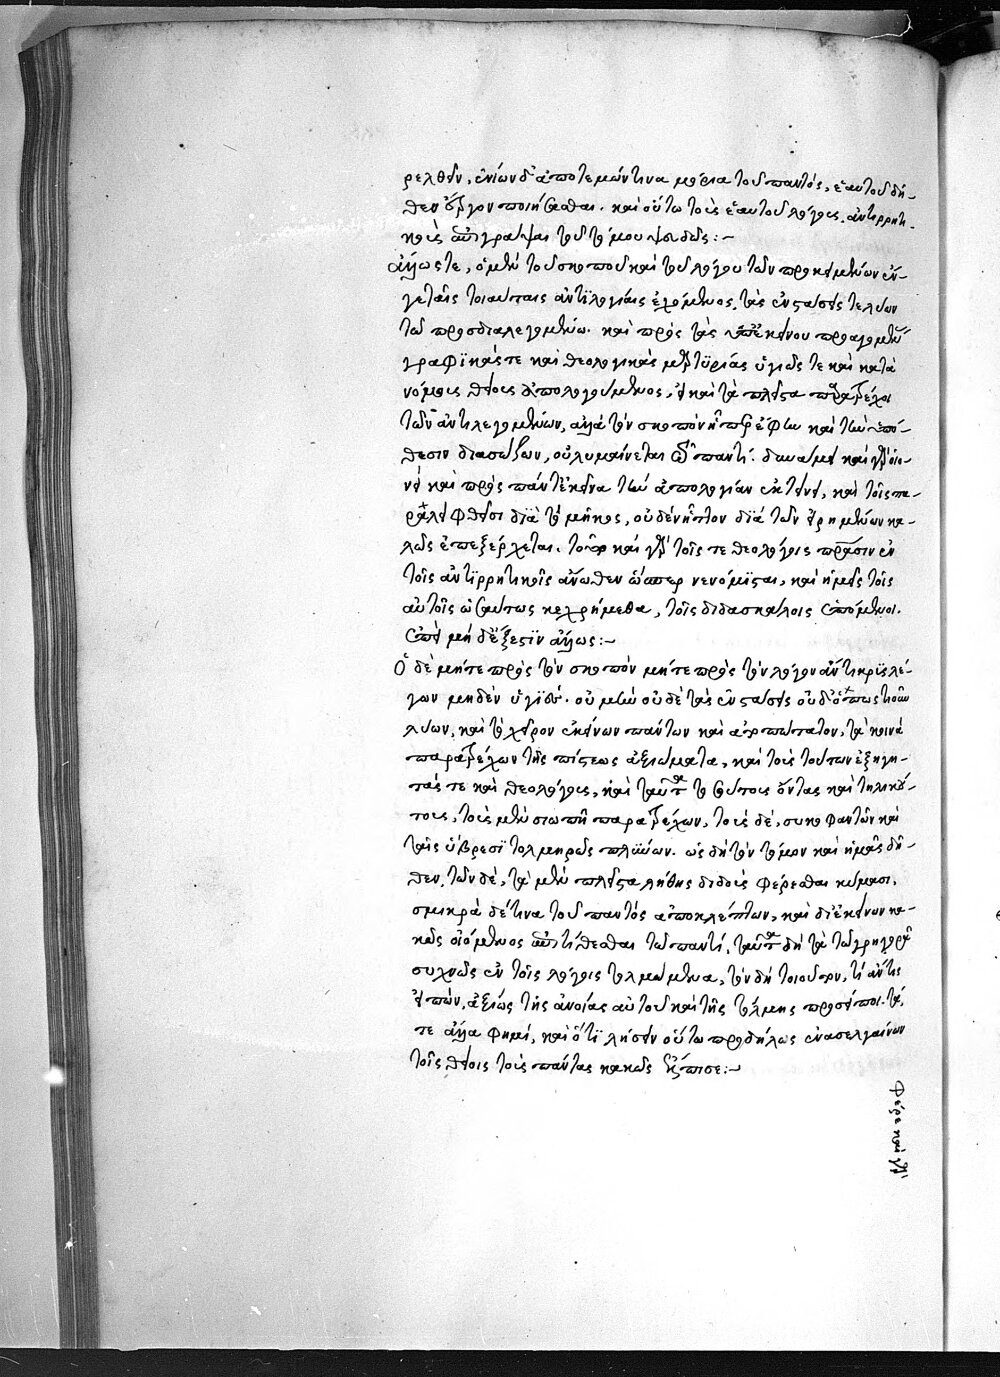 ρελθεῖν, ἐνίων δ' ἀποτεμών τινα μόρια τοῦ παντός, ἑαυτοῦ δῆ-
θεν ἔργον ποιήσασθαι. καὶ οὕτω τοῖς ἑαυτοῦ λόγοις ἀντιρρητι-
κοὺς ἐπιγράψαι τοῦ τόμου ψευδῶς:~
ἄλλως τε, ὁ μὲν τοῦ σκοποῦ καὶ τοῦ λόγου τῶν προκειμένων ἔν
γε ταῖς τοιαύταις ἀντιλογίαις ἐχόμενος, τὰς ἐνστάσεις τε λύων
τῷ προσδιαλεγομένῳ. καὶ πρὸς τὰς ὑπ' ἐκείνου προαγομένας
γραφικάς τε καὶ θεολογικὰς μαρτυρίας ὑγιῶς τε καὶ κατὰ
νόμους θείους ἀπολογούμενος, εἰ καὶ τὰ πλεῖστα παρατρέχοι
τῶν ἀντιλεγομένων, ἀλλὰ τὸν σκοπὸν καὶ τὴν ὑπό-
θεσιν διασώζων, οὐ λυμαίνεται τῷ παντί. δυνάμει καὶ γὰρ οἱο-
νεὶ καὶ πρὸς πάντ' ἐκεῖνα τὴν ἀπολογίαν ἐκτείνει, καὶ τοῖς πα-
ραλειφθεῖσι διὰ τὸ μῆκος, οὐδὲν ἧττον διὰ τῶν εἰρημένων κα-
λῶς ἐπεξέρχεται. τοῦτο καὶ γὰρ τοῖς τε θεολόγοις πᾶσιν ἐν
τοῖς ἀντιρρητικοῖς ἄνωθεν ὥσπερ νενόμισται, καὶ ἡμεῖς τοῖς
αὐτοῖς ὡσαύτως κεχρήμεθα, τοῖς διδασκάλοις ἑπόμενοι.
ἐπεὶ μὴ δ' ἔξεστιν ἄλλως:~
Ὁ δὲ μήτε πρὸς τὸν σκοπὸν μήτε πρὸς τὸν λόγον ἀντικρὺς λέ-
γων μηδὲν ὑγιές. οὐ μὴν οὐδὲ τὰς ἐνστάσεις οὐδ' ὁπωστιοῦν
λύων, καὶ τὸ χεῖρον ἐκείνων πάντων καὶ ἀτοπώτατον, τὰ κοινὰ
παρατρέχων τῆς πίστεως ἀξιώματα, καὶ τοὺς τούτων ἐξηγη-
τάς τε καὶ θεολόγους, καὶ ταῦτα τοσούτους ὄντας καὶ τηλικού-
τους, τοὺς μὲν σιωπῇ παρατρέχων, τοὺς δὲ, συκοφαντῶν καὶ
ταῖς ὕβρεσι τολμηρῶς πλύνων. ὡς δὴ τὸν τόμον καὶ ἡμᾶς δῆ-
θεν, τῶν δὲ, τὰ μὲν πλεῖστα λήθης διδοὺς φέρεσθαι κύμασι,
σμικρὰ δέ τινα τοῦ παντὸς ἀποκλέπτων, καὶ δι' ἐκείνων κα-
κῶς οἰόμενος ἐπιτίθεσθαι τῷ παντί, ταῦτα δὴ τὰ τῷ γρηγορᾷ
συχνῶς ἐν τοῖς λόγοις τολμώμενα, τὸν δὴ τοιοῦτον, τί ἄν τις
εἰπών, ἀξίως τῆς ἀνοίας αὐτοῦ καὶ τῆς τόλμης προσείποι. τά
τε ἄλλα φημί, καὶ ὅτι λήσειν οὕτω προδήλως ἐνασελγαίνων
τοῖς θείοις τοὺς πάντας κακῶς ἤλπισε:~
φέρε καὶ γὰρ